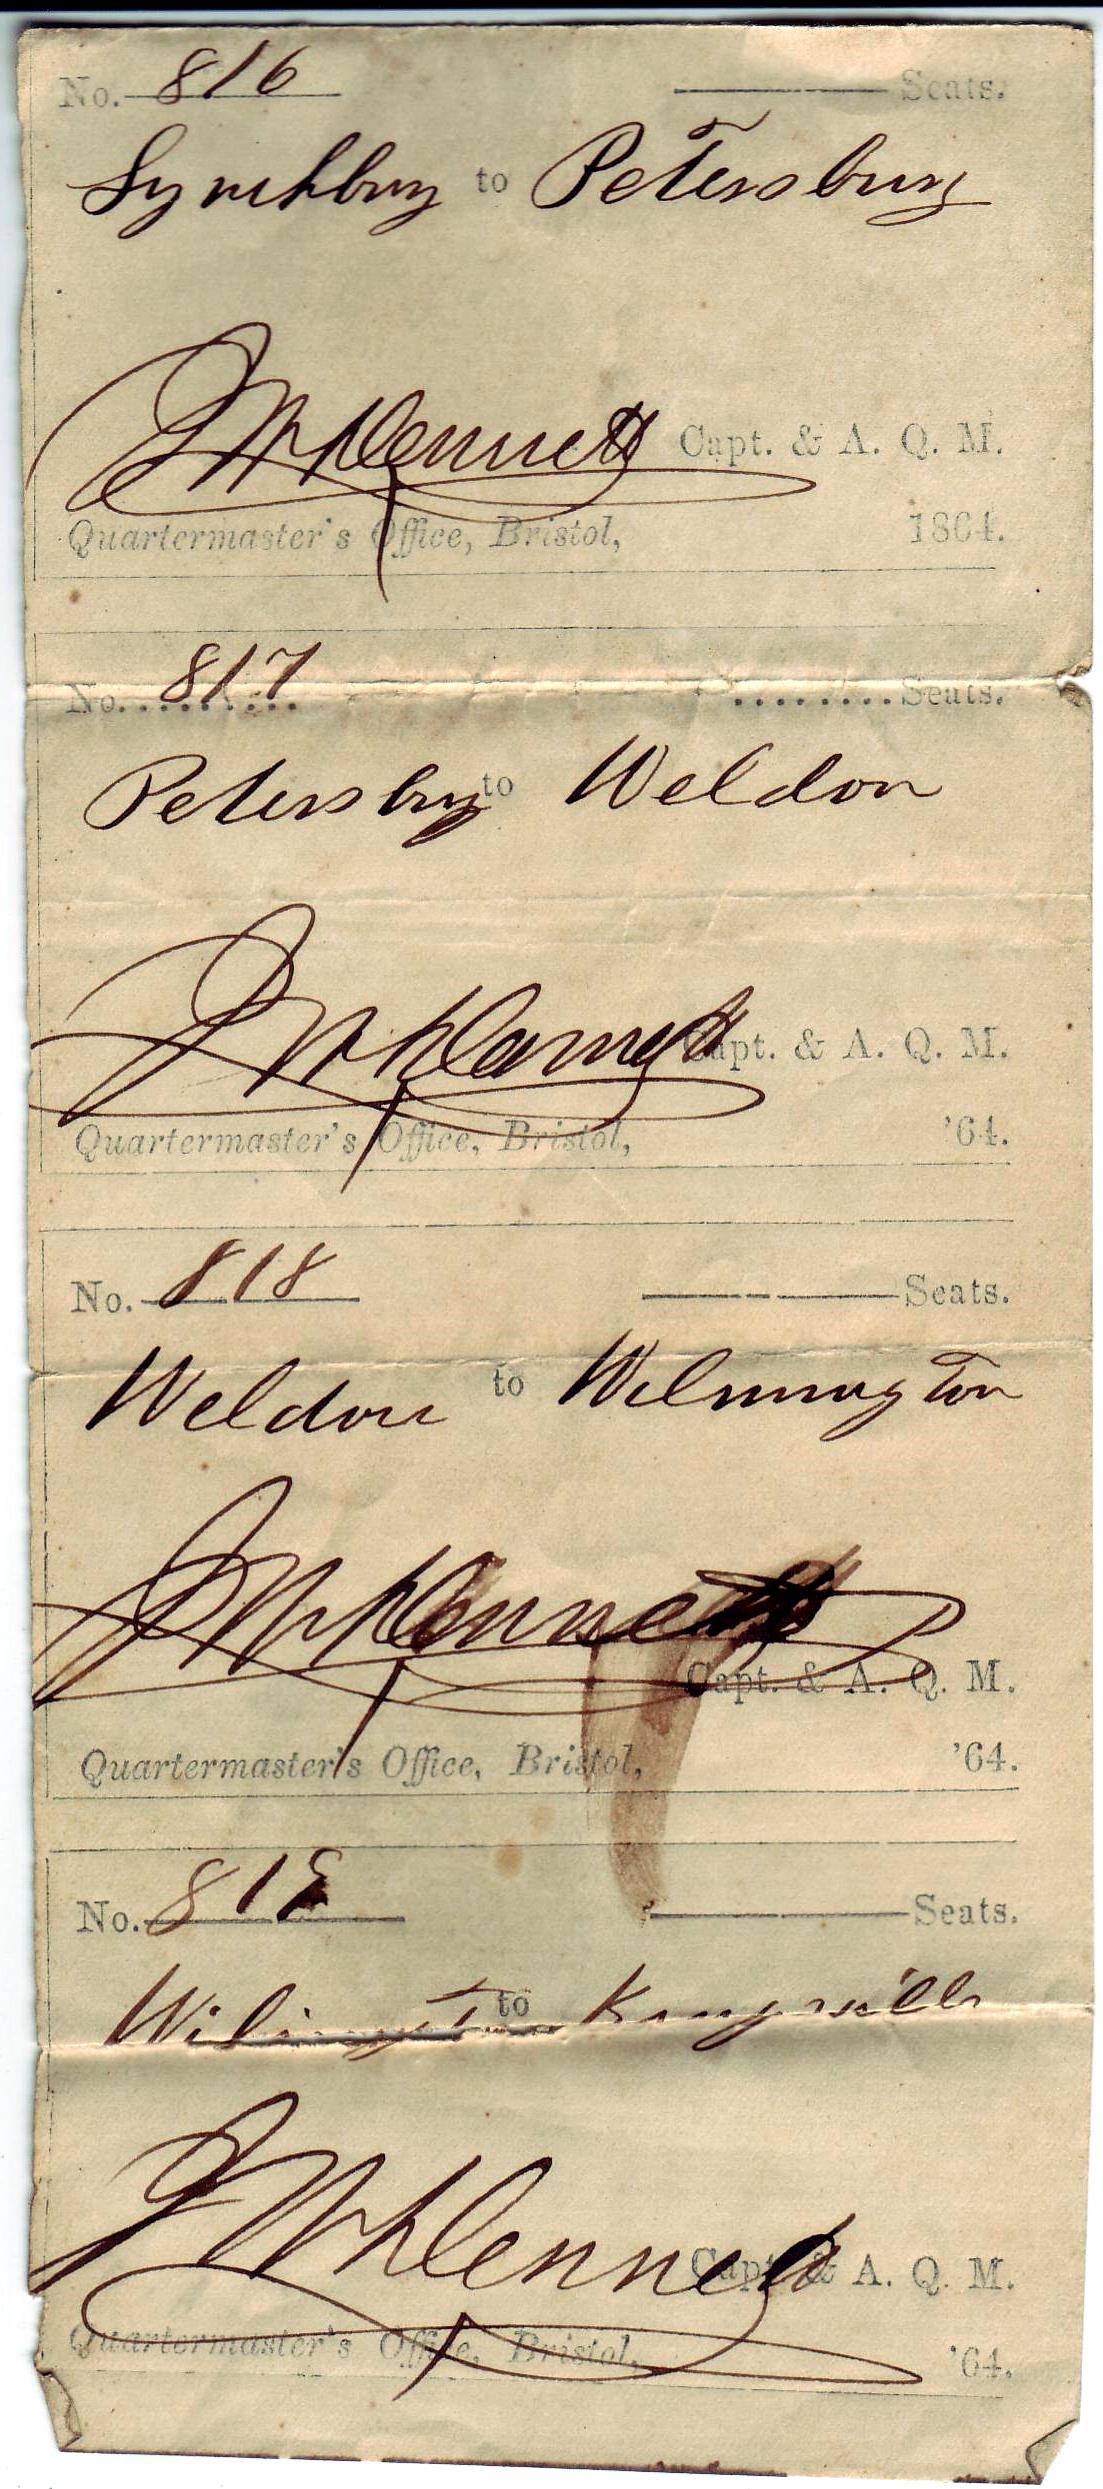 No. 816 Seats.
Lynchburg to Petersburg
Capt. & A. Q. M.
Quartermaster's Office, Bristol, 1864.
No. 817 Seats.
Petersburg to Weldon
Capt. & A. Q. M.
Quartermaster's Office, Bristol, '64.
No. 818 Seats.
Weldon to Wilmington
Capt. & A. Q. M.
Quartermaster's Office, Bristol, '64.
No. 819 Seats.
Wilmington to Kingsville
Capt. & A. Q. M.
Quartermaster's Office, Bristol, '64.